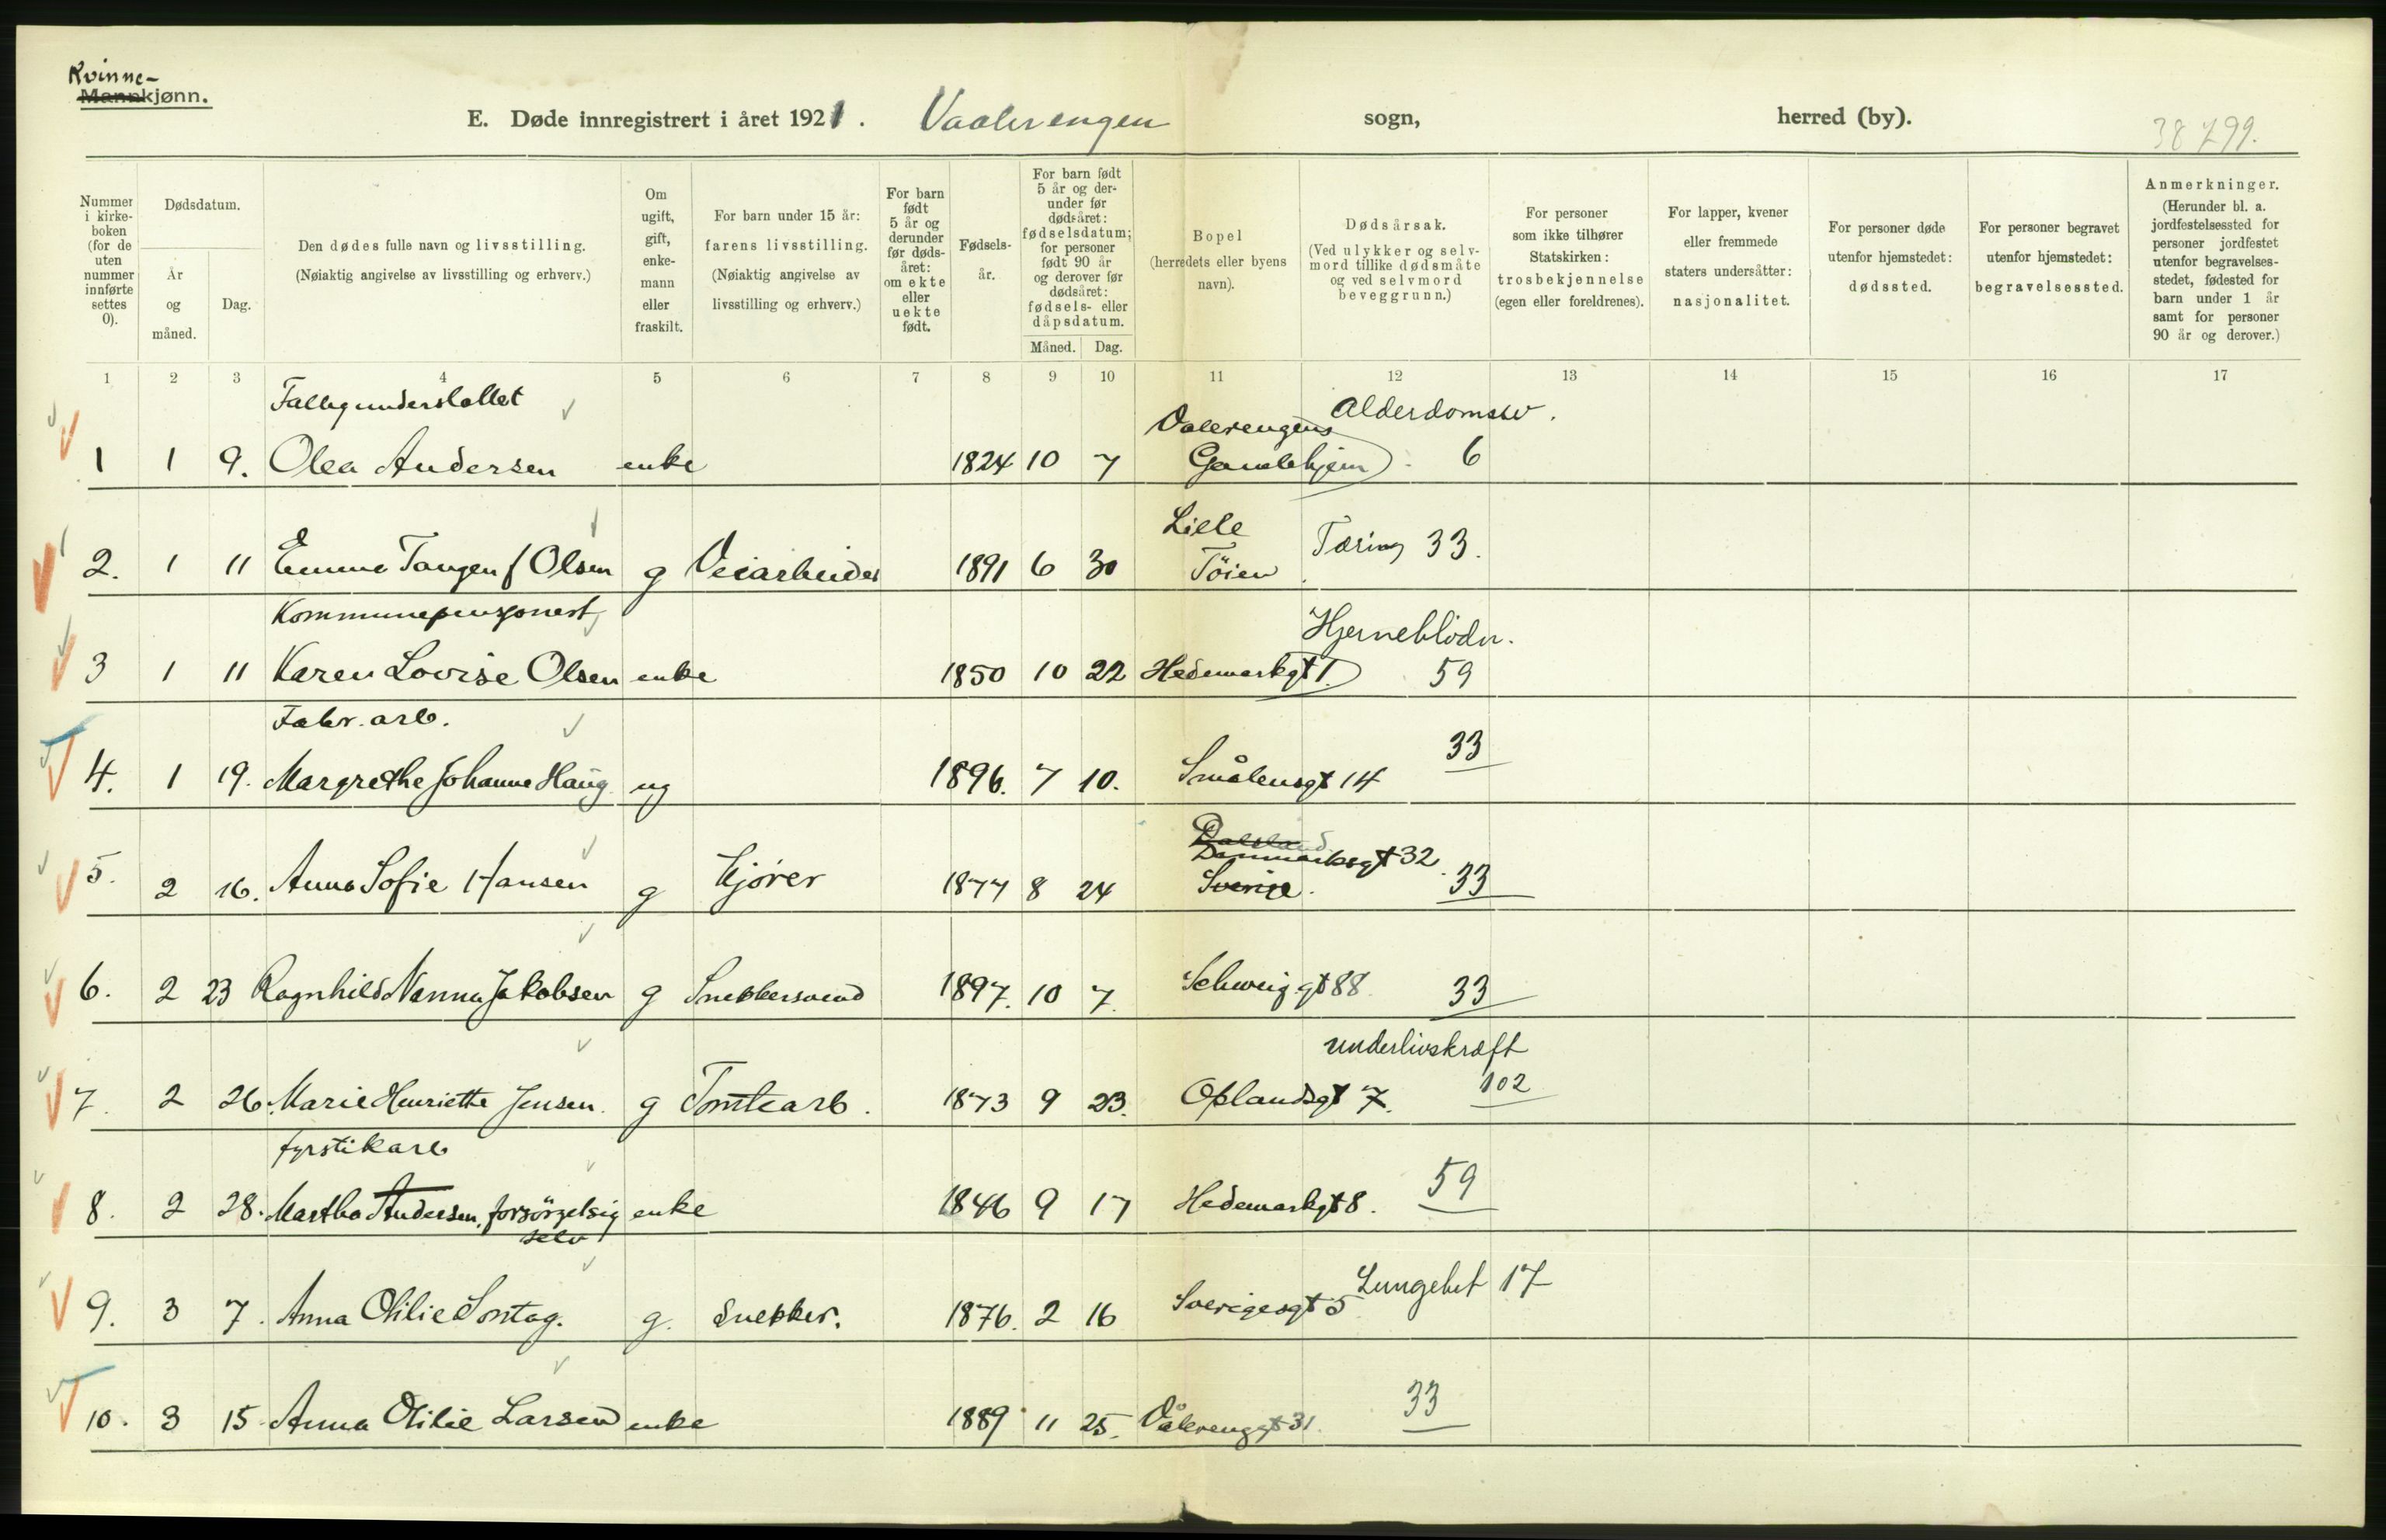 Kvinne-
Mannkjønn.
E. Døde innregistrert i året 1921. Vaalerengen sogn, herred (by). 38 799.
Nummer i kirke-boken (for de uten nummer innførte settes 0).
Dødsdatum.
År og måned.
Dag.
Den dødes fulle navn og livsstilling.
(Nøiaktig angivelse av livsstilling og erhverv.)
Om ugift, gift, enke-mann eller fraskilt.
For barn under 15 år:
farens livsstilling.
(Nøiaktig angivelse av livsstilling og erhverv.)
For barn født 5 år og derunder før døds-året: om ekte eller uekte født.
Fødsels-år.
For barn født 5 år og der-under før dødsåret: fødselsdatum; for personer født 90 år og derover før dødsåret: fødsels- eller dåpsdatum.
Måned. Dag.
Bopel
(herredets eller byens navn).
Dødsårsak.
(Ved ulykker og selv-mord tillike dødsmåte og ved selvmord beveggrunn.)
For personer som ikke tilhører Statskirken: trosbekjennelse (egen eller foreldrenes).
For lapper, kvener eller fremmede staters undersåtter: nasjonalitet.
For personer døde utenfor hjemstedet: dødssted.
For personer begravet utenfor hjemstedet: begravelsessted.
Anmerkninger.
(Herunder bl. a. jordfestelsessted for personer jordfestet utenfor begravelses-stedet, fødested for barn under 1 år samt for personer 90 år og derover.)
1 2 3 4 5 6 7 8 9 10 11 12 13 14 15 16 17
Alderdomssv.
Valerengens
1 1 9. Olea Andersen enke 1824 10 7 Gamlehjem 6
Lille
2. 1 11 Emma Tangen f Olsen g Veiarbeider 1891 6 30 Töien Tæring 33.
Kommunepensjonist Hjerneblödn.
3 1 11 Karen Lovise Olsen enke 1850 10 22 Hedemarkgt 1 59
Fabr. arb. 33
4. 1 19. Margrethe Johanne Haug ug 1896. 7 10. Smålensgt 14
Dalsland
Danmarksgt 32.
5. 2 16. Anna Sofie Hansen g Kjører 1877 8 24 Sverige. 33
6. 2 23 Ragnhild Nanna Jakobsen g Snekkersvend 1897. 10 7. Schweig.gt 88 33
underlivskræft
7. 2 26. Marie Henriette Jensen. g Tomtearb. 1873 9 23. Oplandsgt 7. 102
fyrstikarb
8. 2 28. Martha Andersen, forsörgelsig enke 1846 9 17 Hedemarkgt 8. 59
selv
9. 3 7. Anna Otilie Sontag. g. Snekker. 1876. 2 16 Sverigesgt 5 Lungebet 17
10. 3 15. Anna Otilie Larsen enke 1889 11 25. Vålerenggt 31. 33